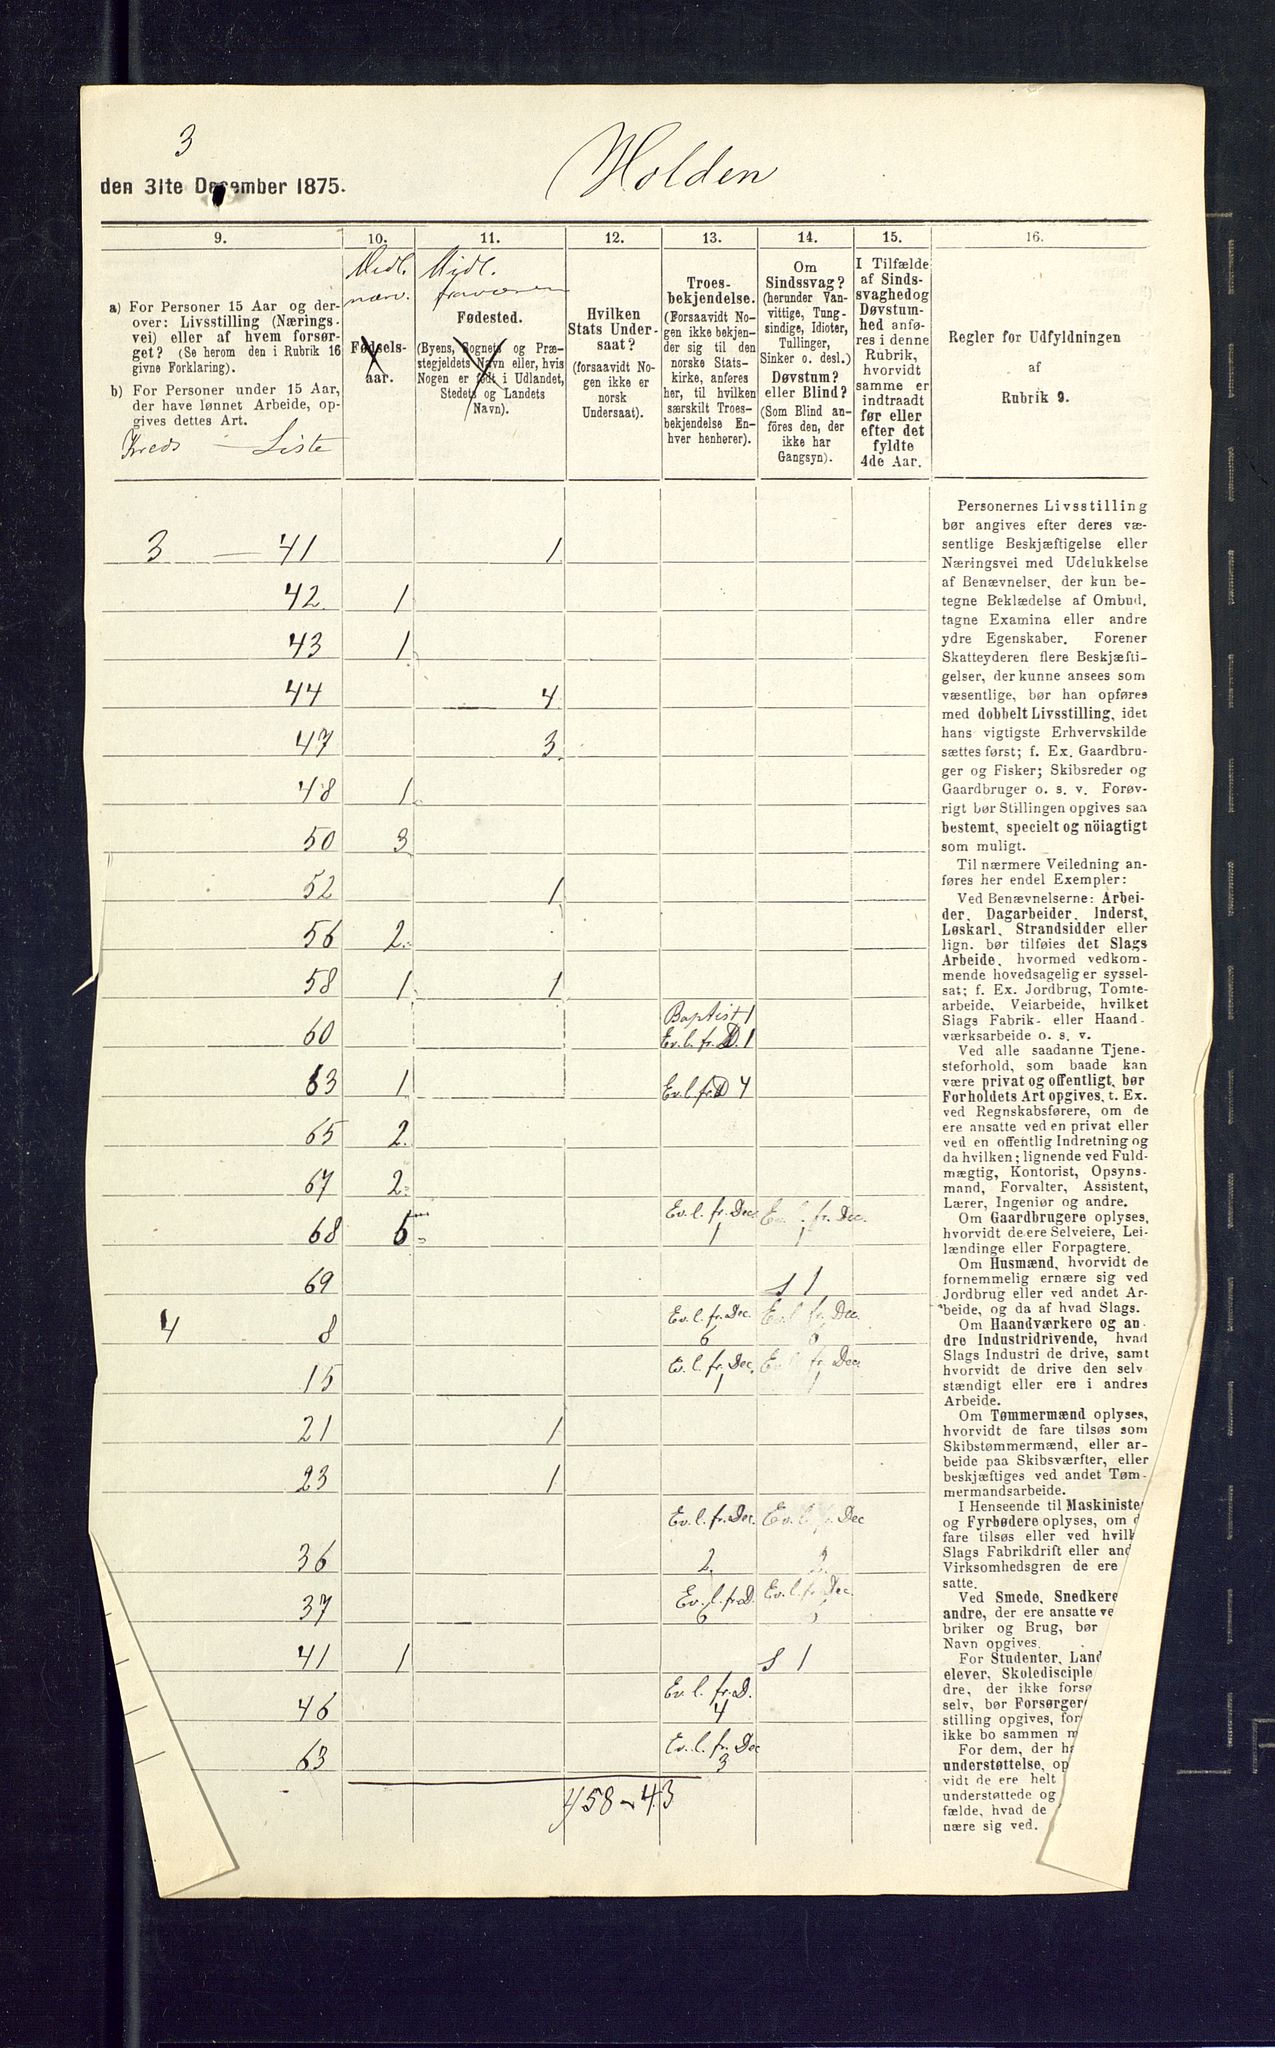 3
den 31te December 1875.
Holden
9.
10.
11.
12.
13.
14.
15.
16.
a) For Personer 15 Aar og der-
over: Livsstilling (Nærings-
vei) eller af hvem forsør-
get? (Se herom den i Rubrik 16
givne Forklaring).
b) For Personer under 15 Aar,
der have lønnet Arbeide, op-
gives dettes Art.
Kreds – Liste
Midl.
nærv.
Fødsels-
aar.
Midl.
fraværen
Fødested.
(Byens, Sognets og Præ-
stegjeldets Navn eller, hvis
Nogen er født i Udlandet,
Stedets og Landets
Navn).
Hvilken
Stats Under-
saat?
(forsaavidt No-
gen ikke er
norsk
Undersaat).
Troes-
bekjendelse.
(Forsaavidt No-
gen ikke bekjen-
der sig til den
norske Stats-
kirke, anføres
her, til hvilken
særskilt Troes-
bekjendelse En-
hver henhører).
Om
Sindssvag?
(herunder Van-
vittige, Tung-
sindige, Idioter,
Tullinger,
Sinker o. desl.)
Døvstum?
eller Blind?
(Som Blind an-
føres den, der
ikke har
Gangsyn).
I Tilfælde
af Sinds-
svaghedog
Døvstum-
hed anfø-
res i denne
Rubrik,
hvorvidt
samme er
indtraadt
før eller
efter det
fyldte
4de Aar.
Regler for Udfyldningen
af
Rubrik 9.
3 — 41 1
42. 1
43 1
44 4
47 3
48 1
50 3
52 1
56 2
58 1 1
60 Baptist 1
Ev. l. fr. D. 1
63 1 Ev. l. fr D 4
65 2
67 2
68 5 Ev. l. fr. Dec. 1 Ev. l. fr. Dec. 1
69 S 1
4 8 Ev. l. fr. Dec. 6 Ev. l. fr. Dec. 6
15 Ev. l. fr. Dec. 1 Ev. l. fr. Dec. 1
21 1
23 1
36 Ev. l. fr. Dec. 2. Ev. l. fr. Dec 2.
37 Ev. l. fr D. 6 Ev. l. fr. Dec. 6
41 1 S 1
46 Ev. l. fr. D. 4
63 Ev. l. fr. Dec 3
458 – 43
Personernes Livsstilling
bør angives efter deres væ-
sentlige Beskjæftigelse eller
Næringsvei med Udelukkelse
af Benævnelser, der kun be-
tegne Beklædelse af Ombud,
tagne Examina eller andre
ydre Egenskaber. Forener
Skatteyderen flere Beskjæfti-
gelser, der kunne ansees som
væsentlige, bør han opføres
med dobbelt Livsstilling, idet
hans vigtigste Erhvervskilde
sættes først; f. Ex. Gaardbru-
ger og Fisker; Skibsreder og
Gaardbruger o. s. v. Forøv-
rigt bør Stillingen opgives saa
bestemt, specielt og nöiagtigt
som muligt.
Til nærmere Veiledning an-
føres her endel Exempler:
Ved Benævnelserne: Arbei-
der, Dagarbeider, Inderst,
Løskarl, Strandsidder eller
lign. bør tilføies det Slags
Arbeide, hvormed vedkom-
mende hovedsagelig er syssel-
sat; f. Ex. Jordbrug, Tomte-
arbeide, Veiarbeide, hvilket
Slags Fabrik- eller Haand-
værksarbeide o. s. v.
Ved alle saadanne Tjene-
steforhold, som baade kan
være privat og offentligt, bør
Forholdets Art opgives, t. Ex.
ved Regnskabsførere, om de
ere ansatte ved en privat eller
ved en offentlig Indretning og
da hvilken; lignende ved Fuld-
mægtig, Kontorist, Opsyns-
mand, Forvalter, Assistent,
Lærer, Ingeniør og andre.
Om Gaardbrugere oplyses,
hvorvidt de ere Selveiere, Lei-
lændinge eller Forpagtere.
Om Husmænd, hvorvidt de
fornemmelig ernære sig ved
Jordbrug eller ved andet Ar-
beide, og da af hvad Slags.
Om Haandværkere og an-
dre Industridrivende, hvad
Slags Industri de drive, samt
hvorvidt de drive den selv-
stændigt eller ere i andres
Arbeide.
Om Tømmermænd oplyses,
hvorvidt de fare tilsøs som
Skibstømmermænd, eller ar-
beide paa Skibsværfter, eller
beskjæftiges ved andet Tøm-
mermandsarbeide.
I Henseende til Maskiniste
og Fyrbødere oplyses, om d
fare tilsøs eller ved hvilk
Slags Fabrikdrift eller and
Virksomhedsgren de ere
satte.
Ved Smede, Snedkere
andre, der ere ansatte ve
briker og Brug, bør
Navn opgives.
For Studenter, Land
elever, Skoledisciple
dre, der ikke forsø
selv, bør Forsørger
stilling opgives, for
ikke bo sammen m
For dem, der h
understøttelse, op
vidt de ere helt
understøttede og
fælde, hvad de
nære sig ved.